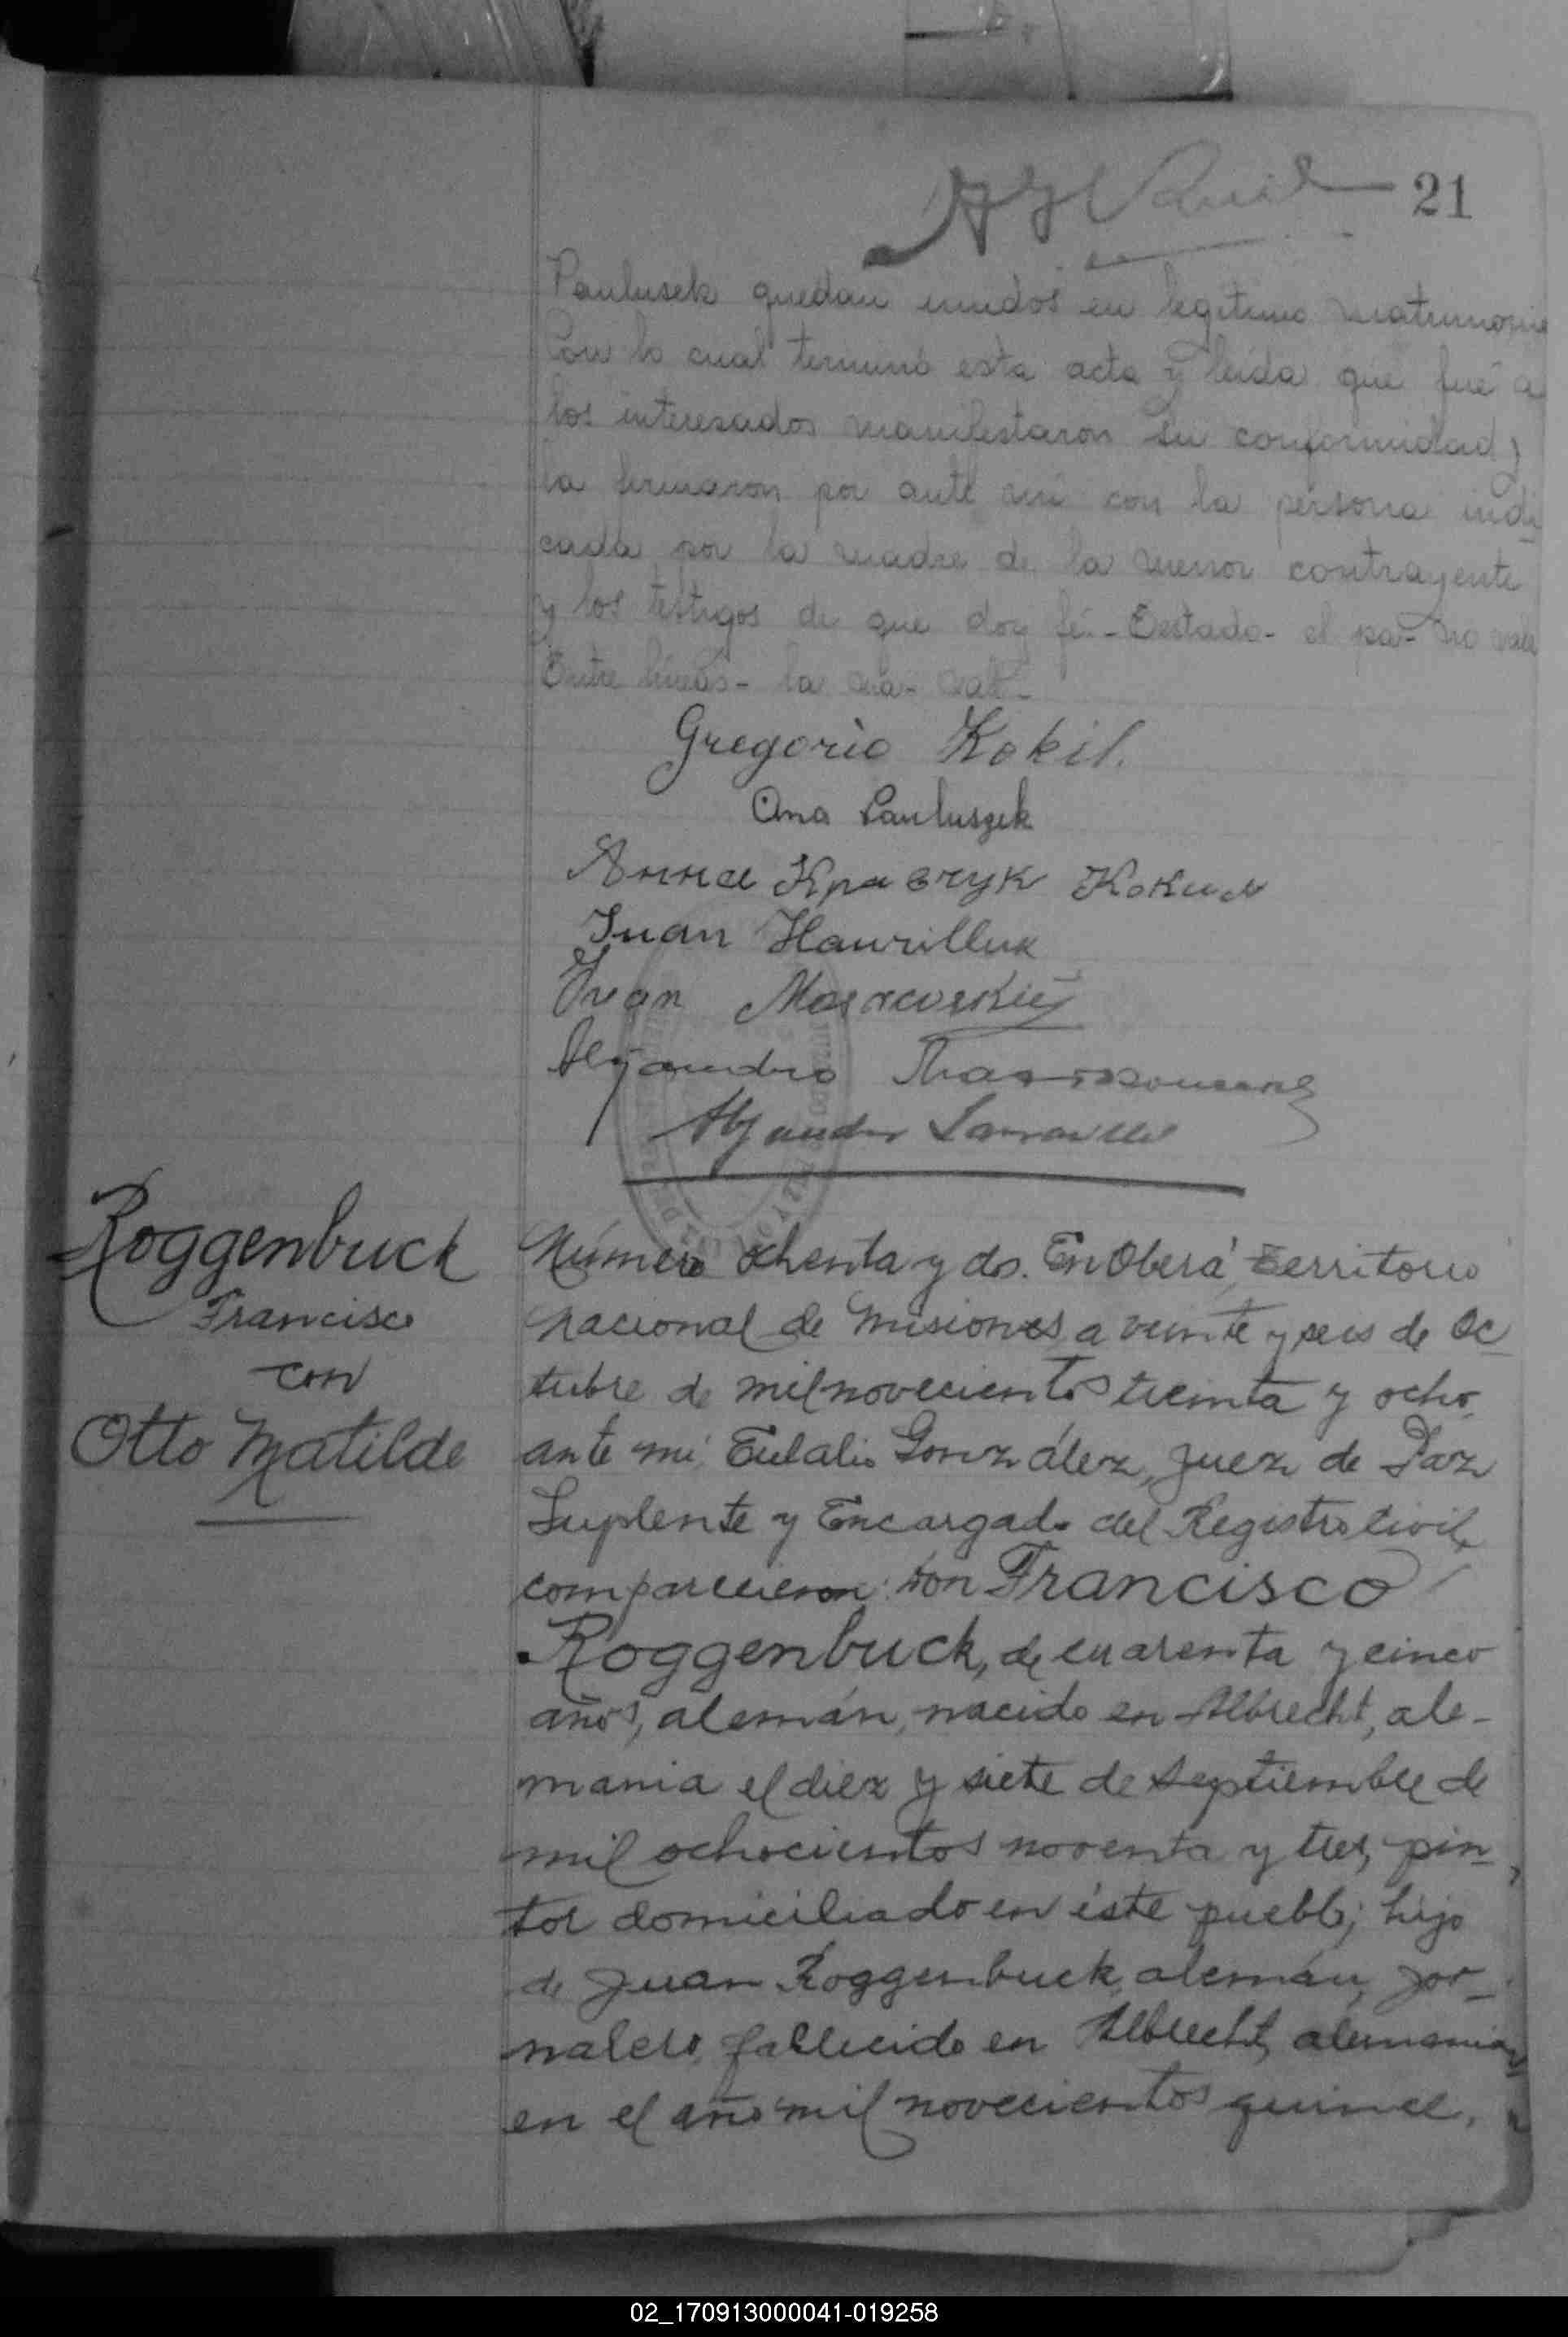 21
Paulusek quedan unidos en legitimo matrimonio
Con lo cual terminó esta acta y leida que fué a
los interesados manifestaron su conformidad y
la firmaron por ante mi con la persona indi
cada por la madre de la menor contrayente
y los testigos de que doy fé.- Testado- el pa- no vale
Entre lineas- la ma- vale-
Gregorio Kokil.
Ana Pauluszek
Анна Кравчук
Juan Hawrilluk
Iván
Alejandro
Alejandro
Roggenbuck
Francisco
con
Otto Matilde
Número ochenta y dos. En Oberá, Territorio
nacional de Misiones, a veinte y seis de Oc
tubre de mil novecientos treinta y ocho,
ante mi, Eulalio González, Juez de Paz
Suplente y Encargado del Registro Civil,
comparecieron: Don Francisco
Roggenbuck, de cuarenta y cinco
años, alemán, nacido en Albrecht, ale-
mania el diez y siete de septiembre de
mil ochocientos noventa y tres, pin-
tor domiciliado en éste pueblo; hijo
de Juan Roggenbuck, alemán, jor-
nalero, fallecido en Albrecht, alemania,
en el año mil novecientos quince,
02_170913000041-019258